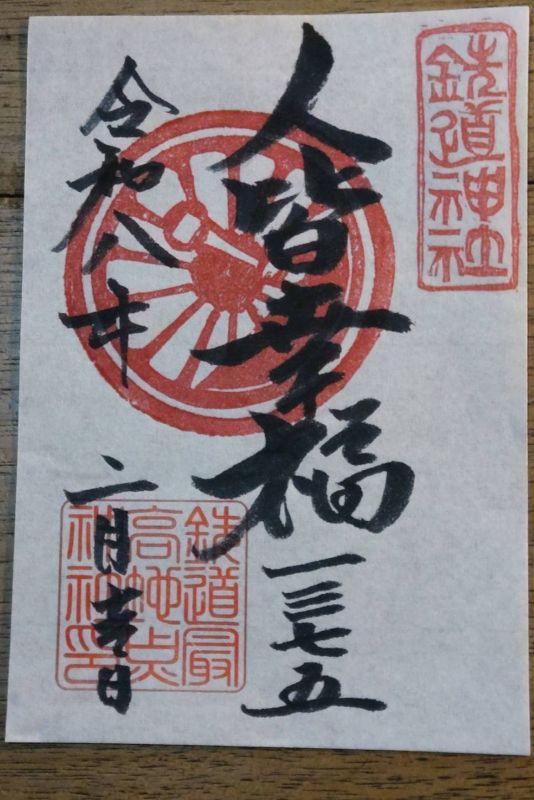 鉄道神社
人皆幸福
一三七五
令和八年
二月吉日
鉄道最
高地点
神社印